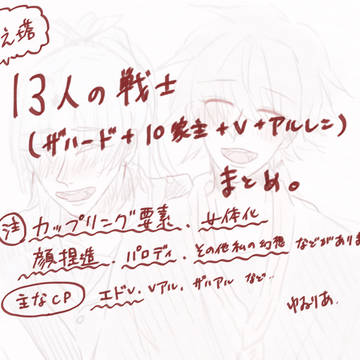 え塔
13人の戦士
(ザハード+10家主+V+アルレン)
まとめ。
注 カップリング要素、女体化
顔捏造、パロディ、その他私の幻想 などがありま
主なCP エドV、Vアル、ザハアル など..
ゆるりあ.